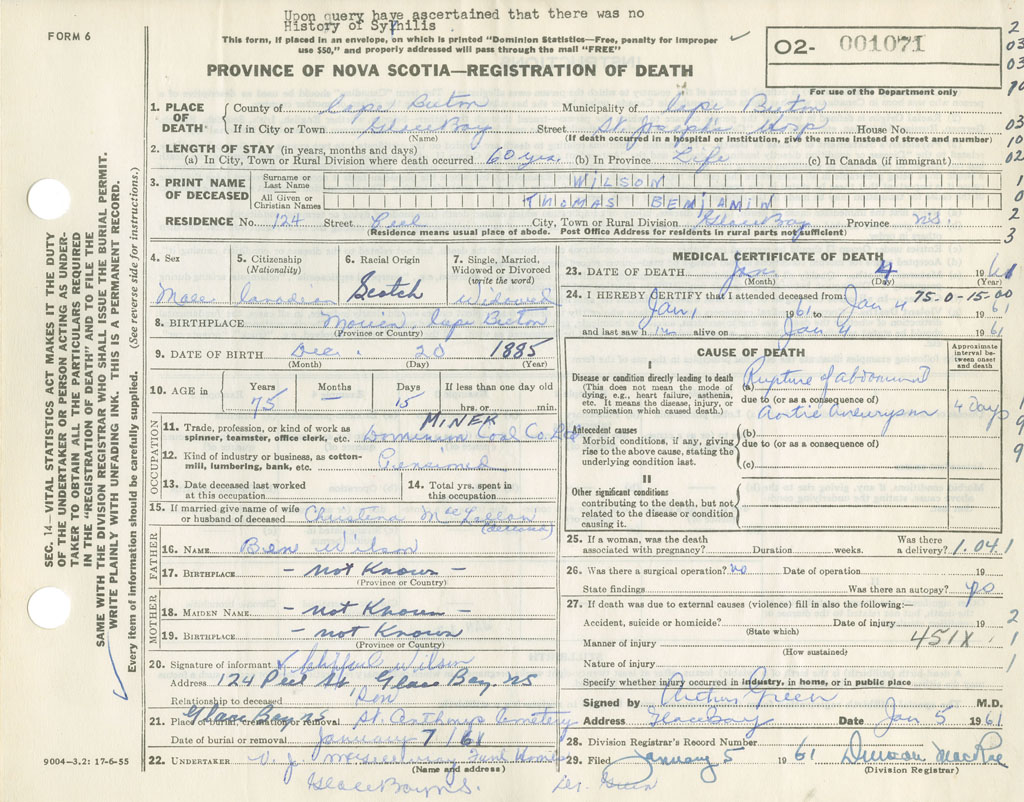 Upon query have ascertained that there was no
History of Syphilis .
FORM 6
This form, if placed in an envelope, on which is printed "Dominion Statistics—Free, penalty for improper
use $50," and properly addressed will pass through the mail "FREE"
02- 001071
For use of the Department only
PROVINCE OF NOVA SCOTIA—REGISTRATION OF DEATH
1. PLACE OF DEATH
County of Cape Breton Municipality of Cape Breton
If in City or Town Glace Bay Street St. Joseph's Hosp House No.
(Name) (If death occurred in a hospital or institution, give the name instead of street and number)
2. LENGTH OF STAY (in years, months and days)
(a) In City, Town or Rural Division where death occurred 60 yrs (b) In Province Life (c) In Canada (if immigrant)
3. PRINT NAME OF DECEASED
Surname or Last Name WILSON
All Given or Christian Names THOMAS BENJAMIN
RESIDENCE No. 124 Street Peel City, Town or Rural Division Glace Bay Province N.S.
(Residence means usual place of abode. Post Office Address for residents in rural parts not sufficient)
SEC. 14—VITAL STATISTICS ACT MAKES IT THE DUTY
OF THE UNDERTAKER OR PERSON ACTING AS UNDER-
TAKER TO OBTAIN ALL THE PARTICULARS REQUIRED
IN THE "REGISTRATION OF DEATH" AND TO FILE THE
SAME WITH THE DIVISION REGISTRAR WHO SHALL ISSUE THE BURIAL PERMIT.
WRITE PLAINLY WITH UNFADING INK. THIS IS A PERMANENT RECORD.
Every item of information should be carefully supplied. (See reverse side for instructions.)
4. Sex Male
5. Citizenship (Nationality) Canadian
6. Racial Origin Scotch
7. Single, Married, Widowed or Divorced (write the word) Widowed
8. BIRTHPLACE Morien, Cape Breton
(Province or Country)
9. DATE OF BIRTH Dec. 20 1885
(Month) (Day) (Year)
10. AGE in Years 75 Months — Days 15 If less than one day old hrs. or min.
OCCUPATION
MINER
11. Trade, profession, or kind of work as spinner, teamster, office clerk, etc. Dominion Coal Co. Ltd
12. Kind of industry or business, as cotton-mill, lumbering, bank, etc. Pensioned
13. Date deceased last worked at this occupation
14. Total yrs. spent in this occupation
15. If married give name of wife or husband of deceased Christena
FATHER
16. NAME Ben Wilson
17. BIRTHPLACE — not Known —
(Province or Country)
MOTHER
18. MAIDEN NAME — not Known —
19. BIRTHPLACE — not Known
(Province or Country)
20. Signature of informant Wilson
Address 124 Peel St. Glace Bay, NS
Relationship to deceased Son
21. Place of burial, cremation or removal Glace Bay NS St. Anthonys Cemetery
Date of burial or removal January 7/61
22. UNDERTAKER V. J. Funl Home
(Name and address)
Glace Bay N.S. Dr. Green
9004—3.2: 17-6-55
MEDICAL CERTIFICATE OF DEATH
23. DATE OF DEATH Jan 4 1961
(Month) (Day) (Year)
75-0-15-00
24. I HEREBY CERTIFY that I attended deceased from
Jan 1 1961 to Jan 4 1961
and last saw him alive on Jan 4 1961
CAUSE OF DEATH
Approximate interval between onset and death
I
Disease or condition directly leading to death
(This does not mean the mode of dying, e.g., heart failure, asthenia, etc. It means the disease, injury, or complication which caused death.)
(a) Rupture of abdominal
due to (or as a consequence of)
Aortic Aneurysm 4 Days
Antecedent causes
Morbid conditions, if any, giving rise to the above cause, stating the underlying condition last.
(b)
due to (or as a consequence of)
(c)
II
Other significant conditions
contributing to the death, but not related to the disease or condition causing it.
25. If a woman, was the death associated with pregnancy? Duration weeks. Was there a delivery? 1.041
26. Was there a surgical operation? no Date of operation 19
State findings Was there an autopsy? no
27. If death was due to external causes (violence) fill in also the following:—
Accident, suicide or homicide? Date of injury 19
(State which)
Manner of injury 451X
(How sustained)
Nature of injury
Specify whether injury occurred in industry, in home, or in public place
Signed by Arthur Green M.D.
Address Glace Bay Date Jan 5 1961
28. Division Registrar's Record Number
29. Filed January 5 1961 Duncan MacRae
(Division Registrar)